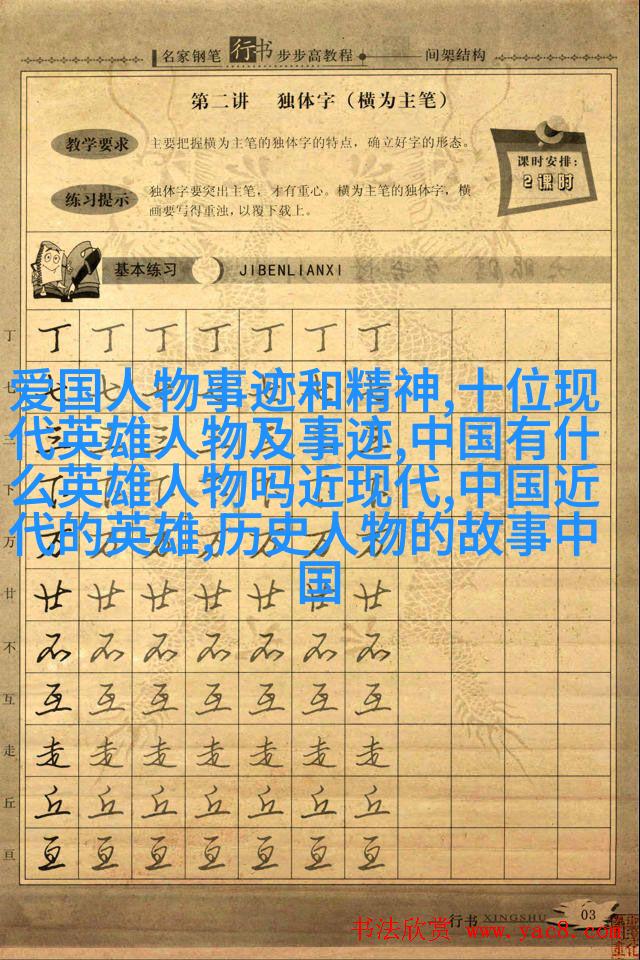 名家钢笔行书步步高教程 间架结构
第二讲 独体字（横为主笔）
教学要求
主要把握横为主笔的独体字的特点，确立好字的形态。
课时安排：
2课时
练习提示
独体字要突出主笔，才有重心。横为主笔的独体字，横
画要写得重浊，以覆下载上。
基本练习 JIBENLIANXI
丁 丁 丁 丁 丁 丁 丁 丁
爱国人物事迹和精神,十位现
代英雄人物及事迹,中国有什
么英雄人物吗近现代,中国近
代的英雄,历史人物的故事中
国
七 七 七 七 七 七 七 七
三 三 三 三 三 三 三 三
下 下 下 下 下 下 下 下
万 万 万 万 万 万 万 万
廿 廿 廿 廿 廿 廿 廿 廿
不 不 不 不 不 不 不 不
互 互 互 互 互 互 互 互
走 走 走 走 走 走 走 走
丘 丘 丘 丘 丘 丘 丘 丘
亘 亘 亘 亘 亘 亘 亘 亘
行书 XINGSHU 03
书法欣赏 www.yac8.com